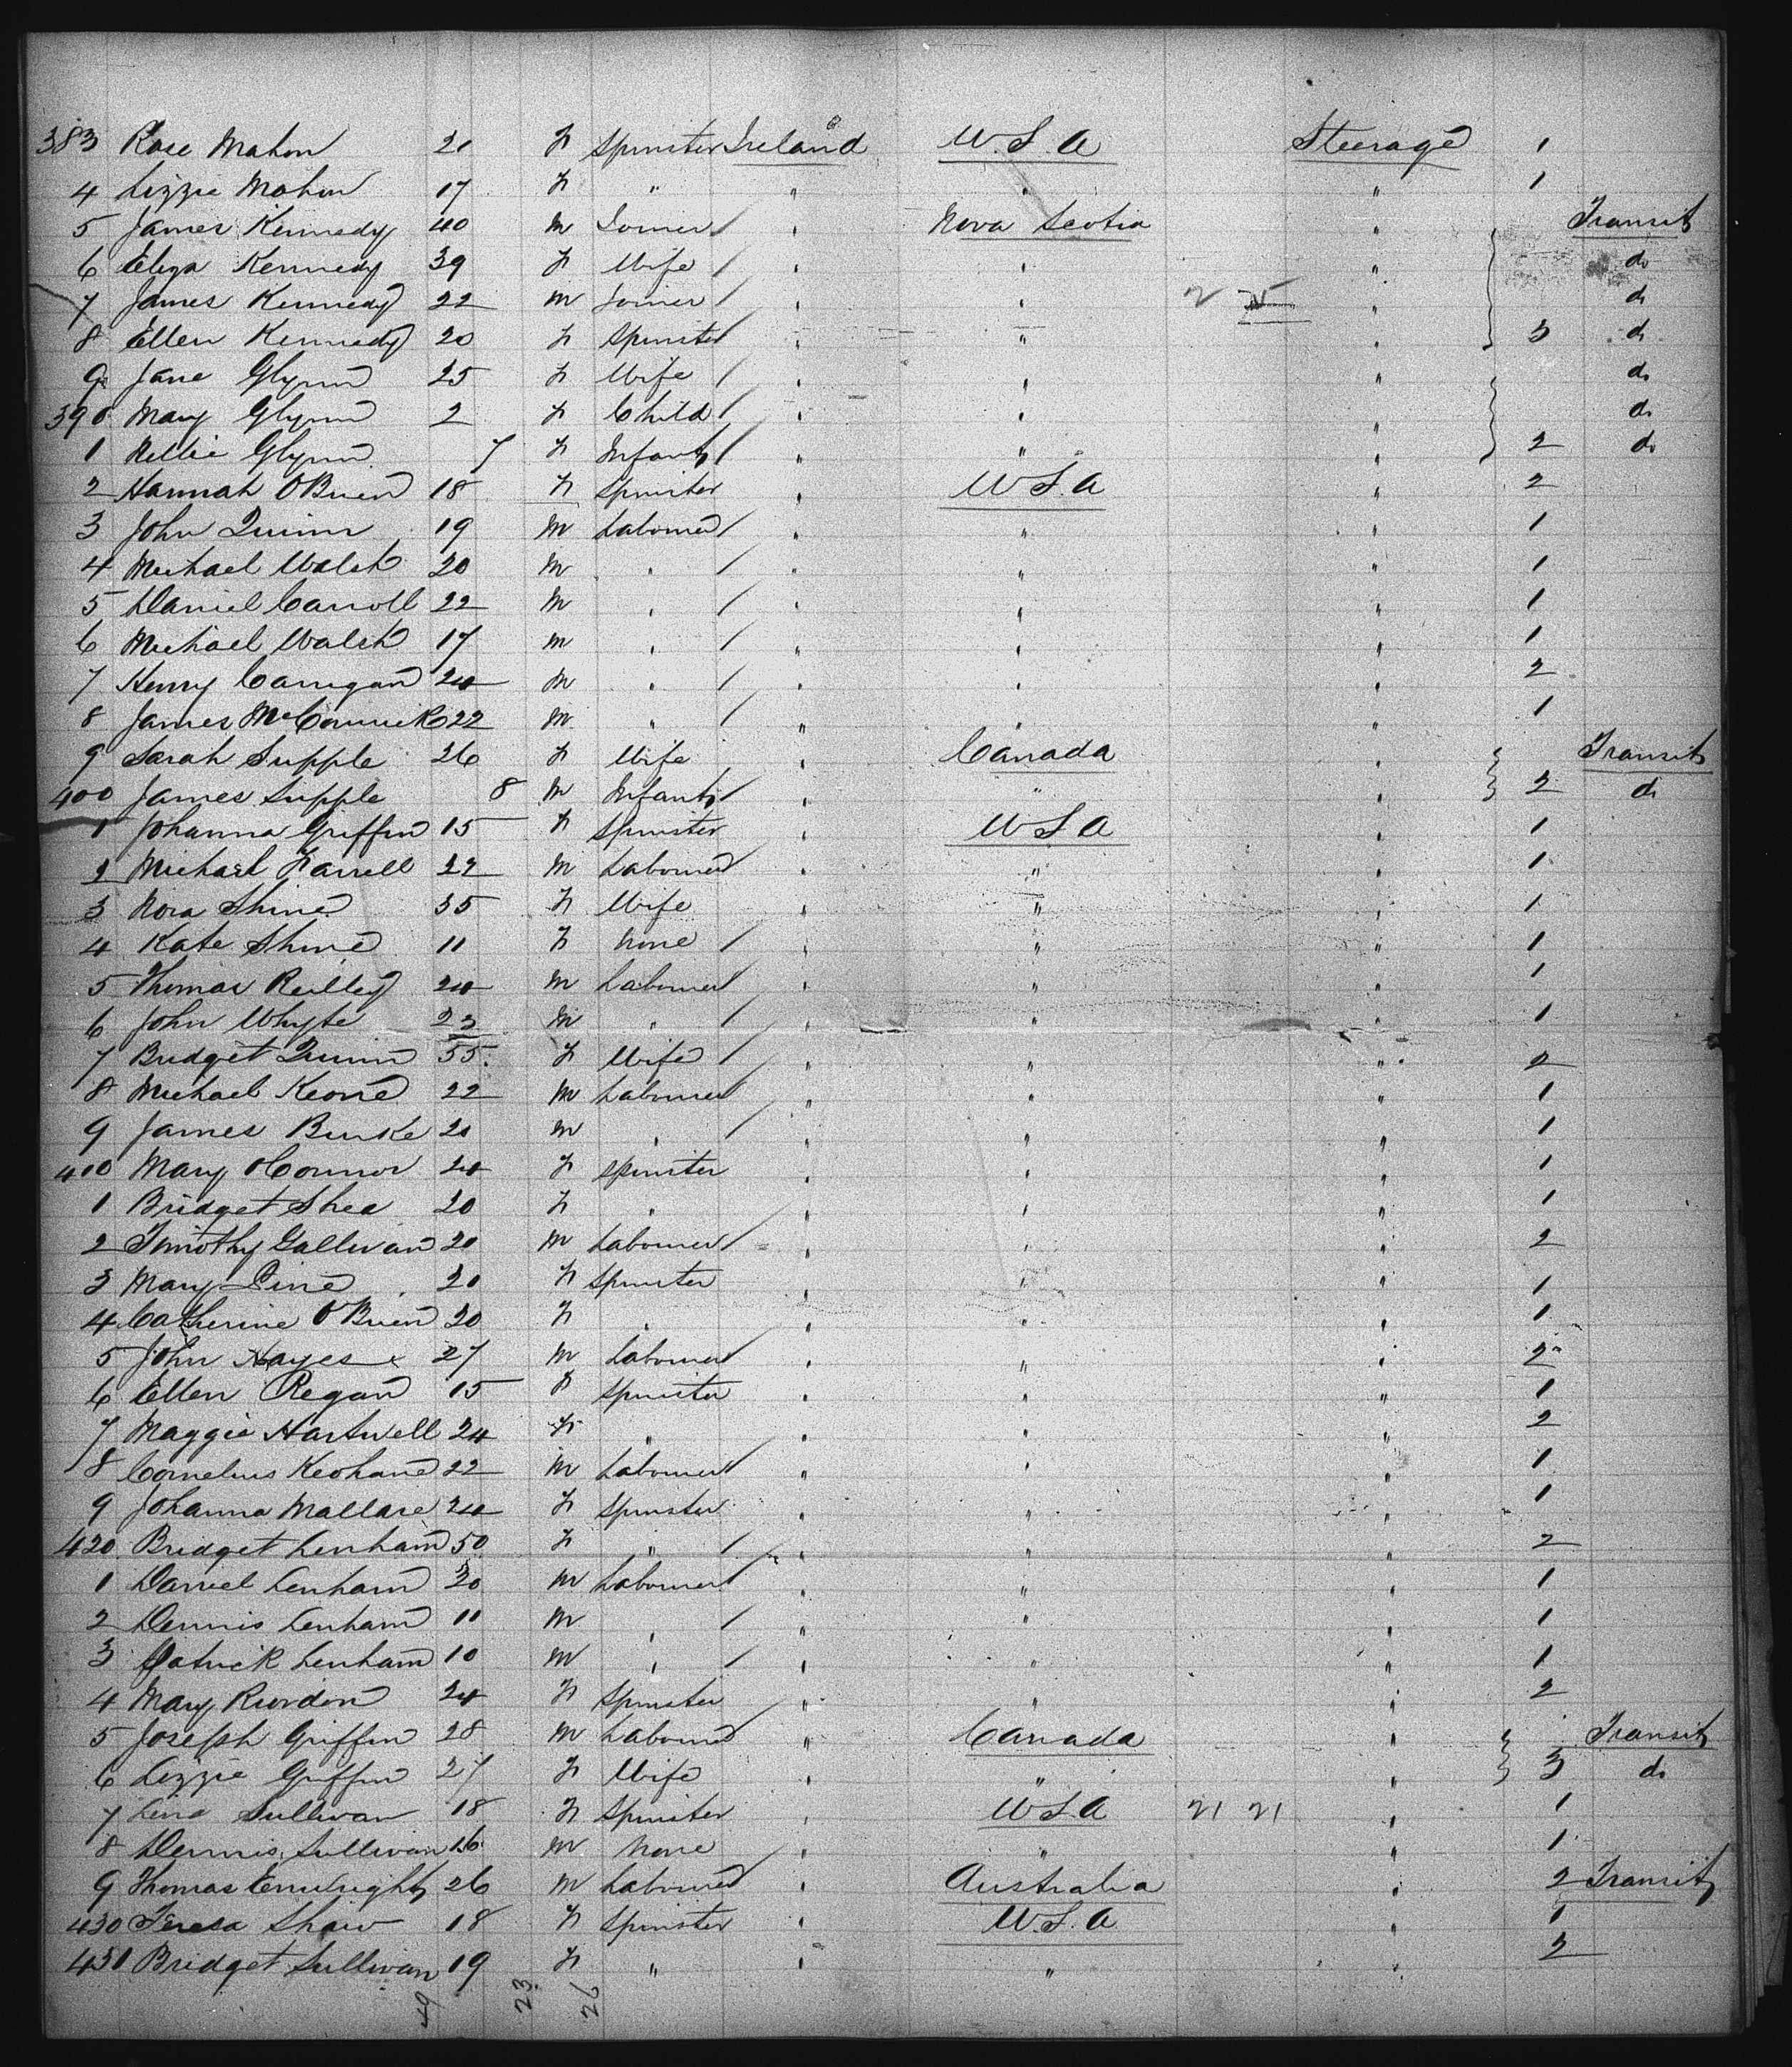 383 Rose Mahon 20 F Spinster Ireland U.S.A Steerage 1
4 Lizzie Mahon 17 F " " " " 1
5 James Kennedy 40 M Joiner / " Nova Scotia " Transit
6 Eliza Kennedy 39 F Wife / " " " do
7 James Kennedy 22 M Joiner / " " 2 " do
8 Ellen Kennedy 20 F Spinster " " " 3 do
9 Jane Glynn 25 F Wife / " " " do
390 Mary Glynn 2 F Child / " " " do
1 Nellie Glynn 7 F Infant / " " " 2 do
2 Hannah O'Brien 18 F Spinster " U.S.A " 2
3 John Quinn 19 M Labourer / " " " 1
4 Michael Walsh 20 M " / " " " 1
5 Daniel Carroll 22 M " / " " " 1
6 Michael Walsh 17 M " / " " " 1
7 Henry Carrigan 24 M " / " " " 2
8 James McCormick 22 M " / " " " 1
9 Sarah Supple 26 F Wife " Canada " Transit
400 James Supple 8 M Infant / " " " 2 do
1 Johanna Griffin 15 F Spinster " U.S.A " 1
2 Michael Farrell 22 M Labourer " " " 1
3 Nora Shine 35 F Wife " " " 1
4 Kate Shine 11 F None / " " " 1
5 Thomas Reilley 24 M Labourer " " " 1
6 John Whyte 23 M " / " " " 1
7 Bridget Quinn 55 F Wife / " " " 2
8 Michael Keone 22 M Labourer " " " 1
9 James Burke 20 M " / " " " 1
410 Mary O'Connor 24 F Spinster " " " 1
1 Bridget Shea 20 F " " " " 1
2 Timothy Gallivan 20 M Labourer / " " " 2
3 Mary Pine 20 F Spinster " " " 1
4 Catherine O'Brien 20 F " " " " 1
5 John Hayes 27 M Labourer " " " 2
6 Ellen Regan 15 F Spinster " " " 1
7 Maggie Hartwell 24 F " " " " 2
8 Cornelius Keohane 22 M Labourer " " " 1
9 Johanna Mallare 24 F Spinster " " " 1
420 Bridget Lenham 50 F " / " " " 2
1 Daniel Lenham 20 M Labourer " " " 1
2 Dennis Lenham 11 M " / " " " 1
3 Patrick Lenham 10 M " / " " " 1
4 Mary Riordon 24 F Spinster " " " 2
5 Joseph Griffin 28 M Labourer " Canada " Transit
6 Lizzie Griffin 27 F Wife " " " 3 do
7 Lena Sullivan 18 F Spinster " U.S.A 21 21 " 1
8 Dennis Sullivan 16 M None " " " 1
9 Thomas Enwright 26 M Labourer " Australia " 2 Transit
430 Teresa Shaw 18 F Spinster " U.S.A " 1
431 Bridget Sullivan 19 F " " " " 2
49 23 26